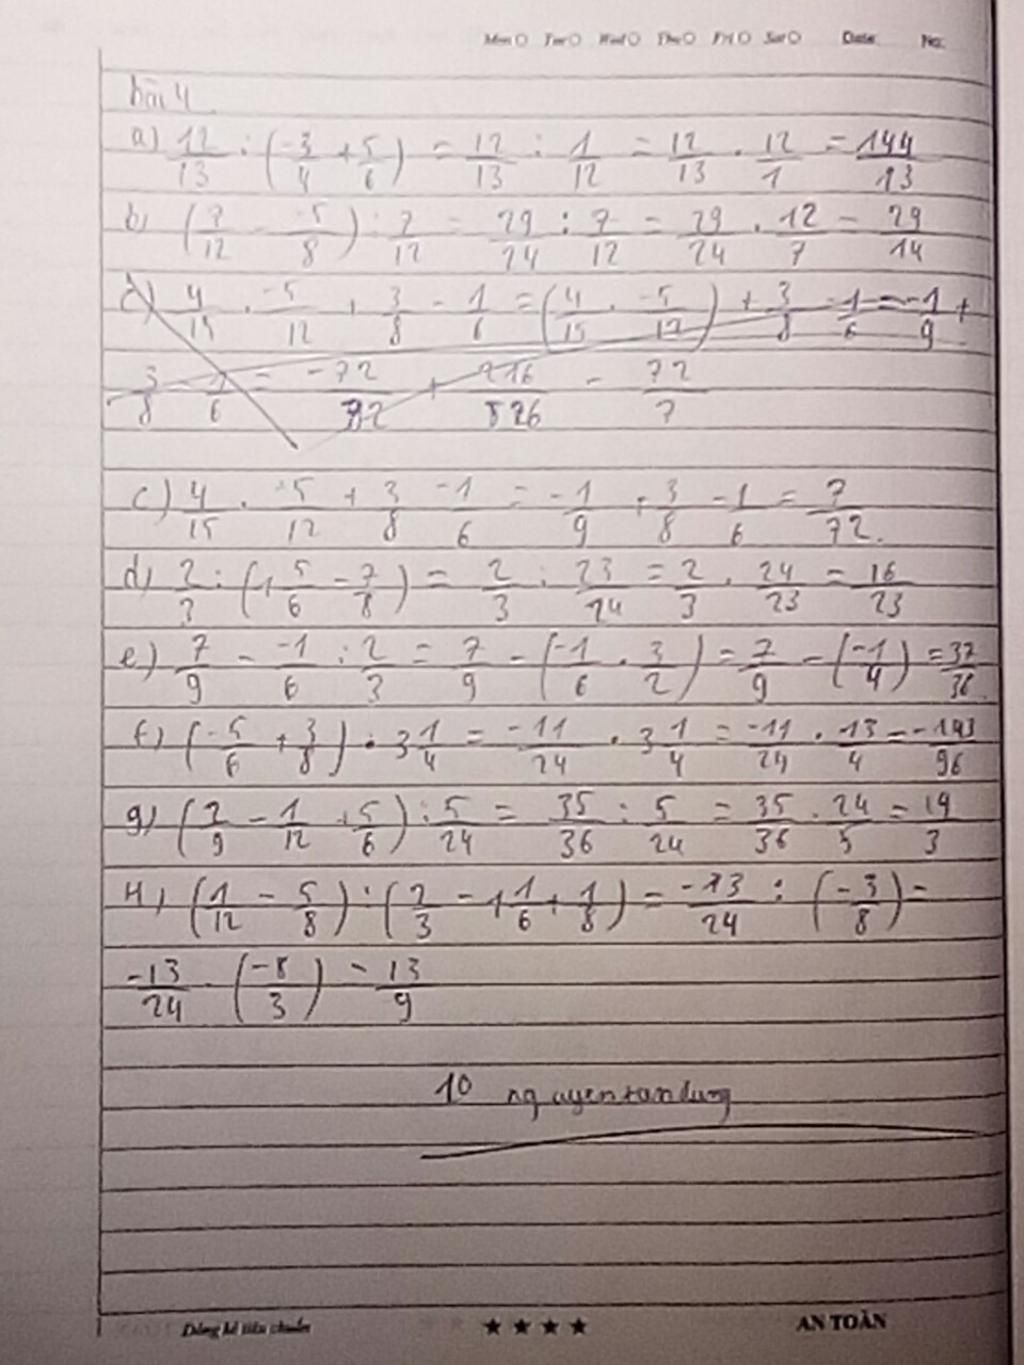 Mon Tue Wed Thu Fri Sat Date No.
bài 4
a) 12/13 : (-3/4 + 5/6) = 12/13 : 1/12 = 12/13 . 12/1 = 144/13
b) (7/12 - -5/8) : 7/12 = 29/24 : 7/12 = 29/24 . 12/7 = 29/14
c) 4/15 . -5/12 + 3/8 - 1/6 = (4/15 . -5/12) + 3/8 - 1/6 = -1/9 +
3/8 - 1/6 = -72 + 216 - 72/7
c) 4/15 . -5/12 + 3/8 - 1/6 = -1/9 + 3/8 - 1/6 = 7/72.
d) 2/3 : (1 5/6 - 7/8) = 2/3 : 23/24 = 2/3 . 24/23 = 16/23
e) 7/9 - -1/6 : 2/3 = 7/9 - (-1/6 . 3/2) = 7/9 - (-1/4) = 37/36
f) (-5/6 + 3/8) . 3 1/4 = -11/24 . 3 1/4 = -11/24 . 13/4 = -143/96
g) (2/9 - 1/12 + 5/6) : 5/24 = 35/36 : 5/24 = 35/36 . 24/5 = 14/3
H) (1/12 - 5/8) : (2/3 - 1 1/6 + 1/8) = -13/24 : (-3/8) =
-13/24 . (-8/3) = 13/9
10 nguyentandung
Dòng kẻ tiêu chuẩn ★★★★ AN TOÀN